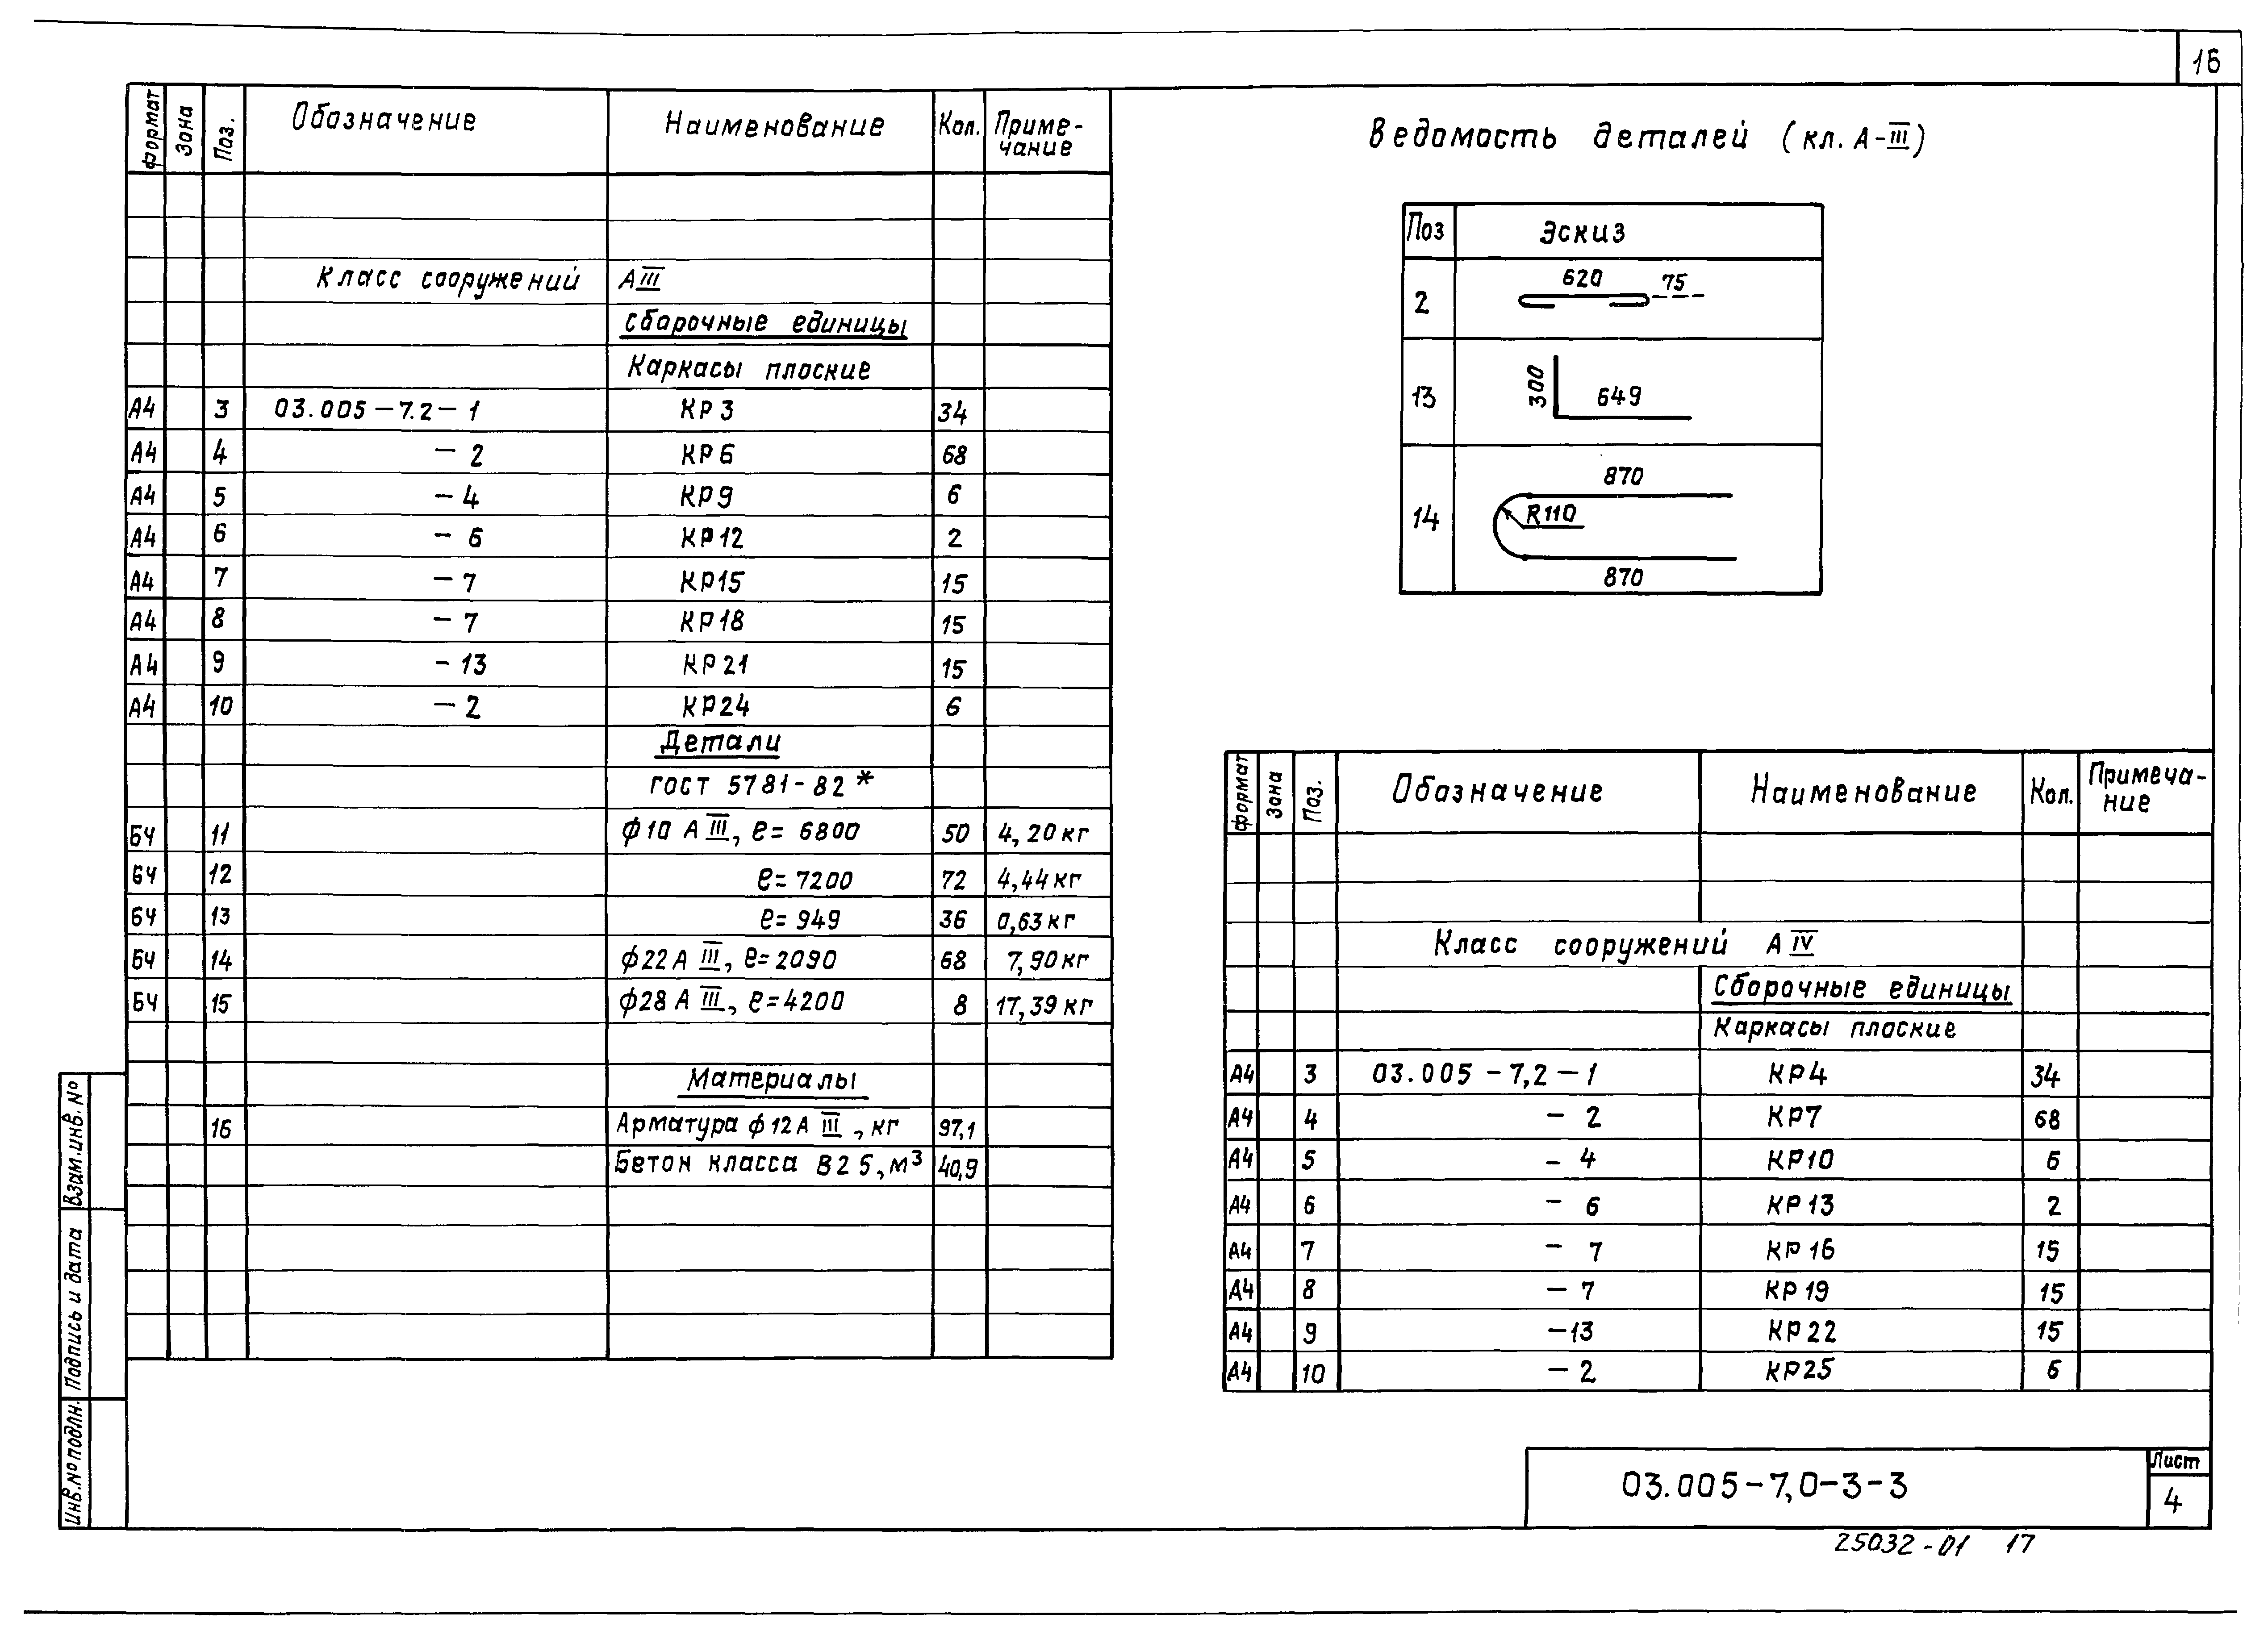 16
формат Зона Поз. Обозначение Наименование Кол. Приме-
чание
Класс сооружений А III
Сборочные единицы
Каркасы плоские
А4 3 03.005-7.2-1 КР3 34
А4 4 -2 КР6 68
А4 5 -4 КР9 6
А4 6 -6 КР12 2
А4 7 -7 КР15 15
А4 8 -7 КР18 15
А4 9 -13 КР21 15
А4 10 -2 КР24 6
Детали
ГОСТ 5781-82*
БЧ 11 ф10 А III, ℓ=6800 50 4,20кг
БЧ 12 ℓ=7200 72 4,44кг
БЧ 13 ℓ=949 36 0,63кг
БЧ 14 ф22 А III, ℓ=2090 68 7,90кг
БЧ 15 ф28 А III, ℓ=4200 8 17,39кг
Материалы
16 Арматура ф12А III, кг 97,1
Бетон класса В25, м³ 40,9
Ведомость деталей (кл. А-III)
Поз Эскиз
2 620 75
13 300 649
14 870 R110 870
формат Зона Поз. Обозначение Наименование Кол. Примеча-
ние
Класс сооружений А IV
Сборочные единицы
Каркасы плоские
А4 3 03.005-7,2-1 КР4 34
А4 4 -2 КР7 68
А4 5 -4 КР10 6
А4 6 -6 КР13 2
А4 7 -7 КР16 15
А4 8 -7 КР19 15
А4 9 -13 КР22 15
А4 10 -2 КР25 6
Взам.инв.№
Подпись и дата
Инв.№подлн.
03.005-7,0-3-3
Лист
4
25032-01 17